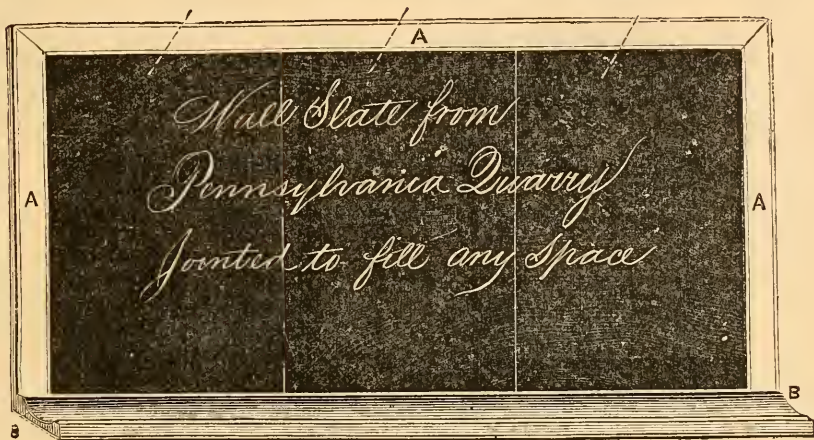 A
Wall Slate from
Pennsylvania Quarry
A A
Jointed to fill any space
B
B